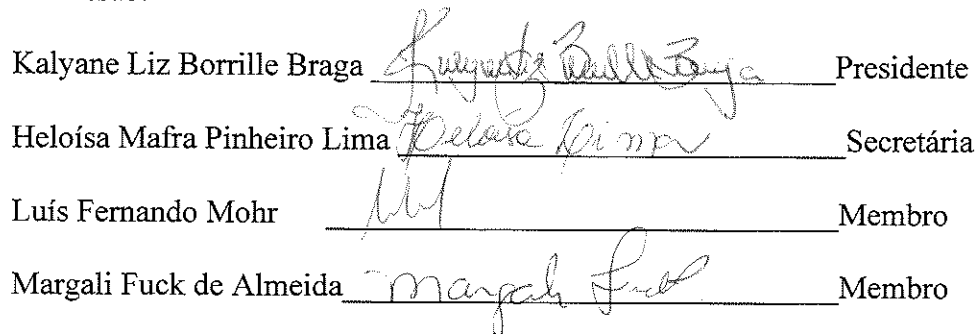 Kalyane Liz Borrille Braga Presidente
Heloísa Mafra Pinheiro Lima Heloísa Lima Secretária
Luís Fernando Mohr Membro
Margali Fuck de Almeida Margali Fuck Membro